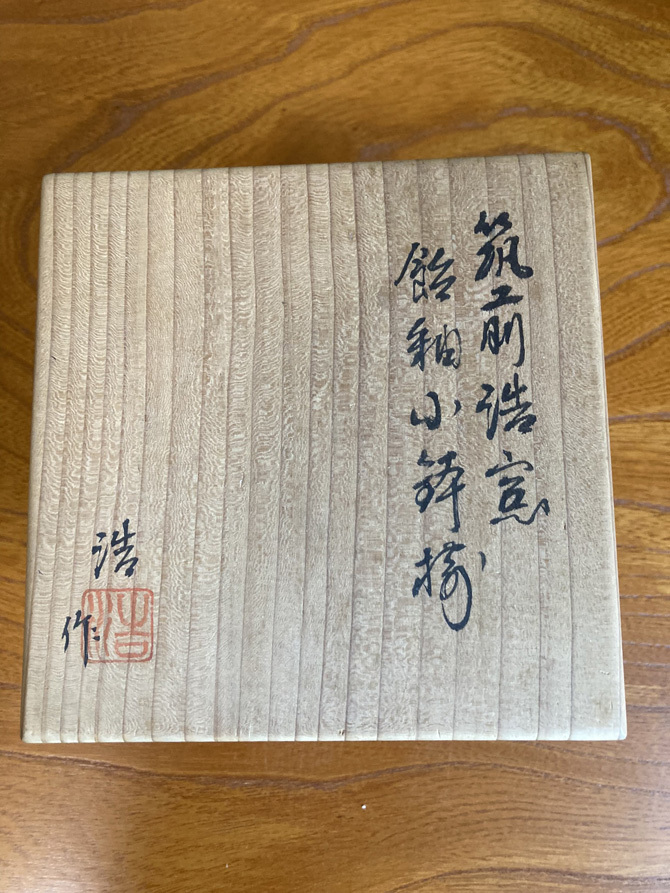 筑前浩窯
飴釉小鉢揃
浩作
浩